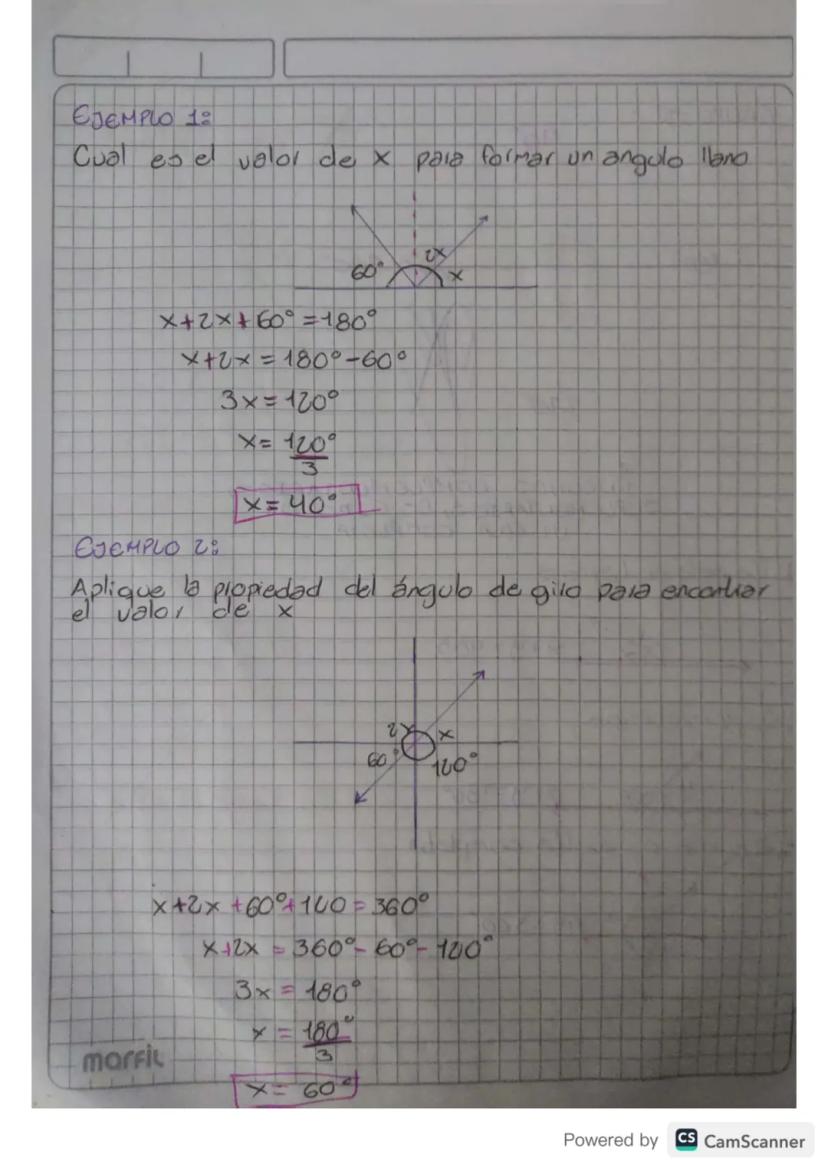 EJEMPLO 1:
Cual es el valor de x para formar un angulo llano
2x
60° x
x+2x+60°=180°
x+2x=180°-60°
3x=120°
x=120°
3
x=40°
EJEMPLO 2:
Aplique la propiedad del ángulo de giro para encontrar
el valor de x
2x x
60° 120°
x+2x+60°+120=360°
x+2x=360°-60°-120°
3x=180°
x=180°
3
x=60°
marfil
Powered by CS CamScanner